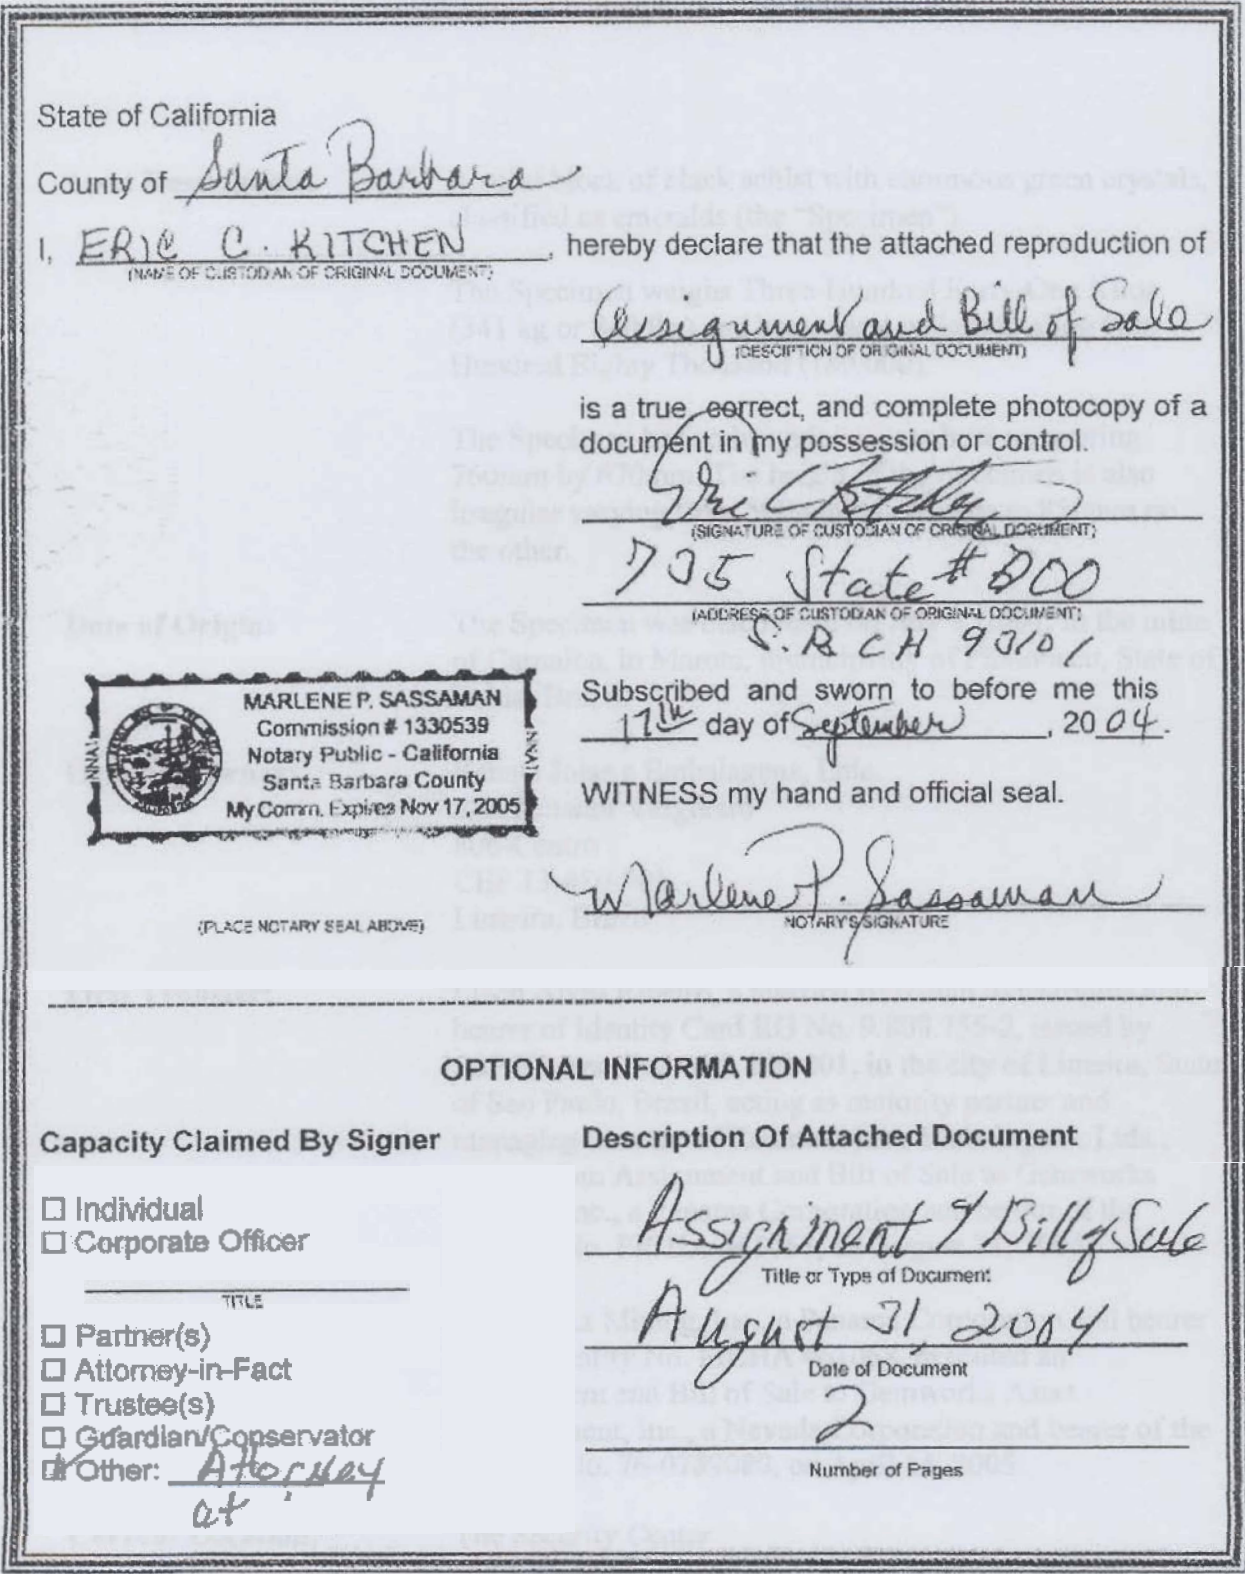 State of California
County of Santa Barbara
I, ERIC C. KITCHEN, hereby declare that the attached reproduction of
(NAME OF CUSTODIAN OF ORIGINAL DOCUMENT)
Assignment and Bill of Sale
(DESCIPTION OF ORIGINAL DOCUMENT)
is a true, correct, and complete photocopy of a
document in my possession or control.
(SIGNATURE OF CUSTODIAN OF ORIGINAL DOCUMENT)
735 State #
(ADDRESS OF CUSTODIAN OF ORIGINAL DOCUMENT)
Subscribed and sworn to before me this
17th day of September, 2004.
MARLENE P. SASSAMAN
Commission # 1330539
Notary Public - California
Santa Barbara County
My Comm. Expires Nov 17, 2005
WITNESS my hand and official seal.
Marlene P. Sassaman
NOTARY'S SIGNATURE
(PLACE NOTARY SEAL ABOVE)
OPTIONAL INFORMATION
Capacity Claimed By Signer
☐ Individual
☐ Corporate Officer
TITLE
☐ Partner(s)
☐ Attorney-in-Fact
☐ Trustee(s)
☐ Guardian/Conservator
Other: Attorney
at
Description Of Attached Document
Assignment & Bill of Sale
Title or Type of Document
August 31, 2004
Date of Document
2
Number of Pages